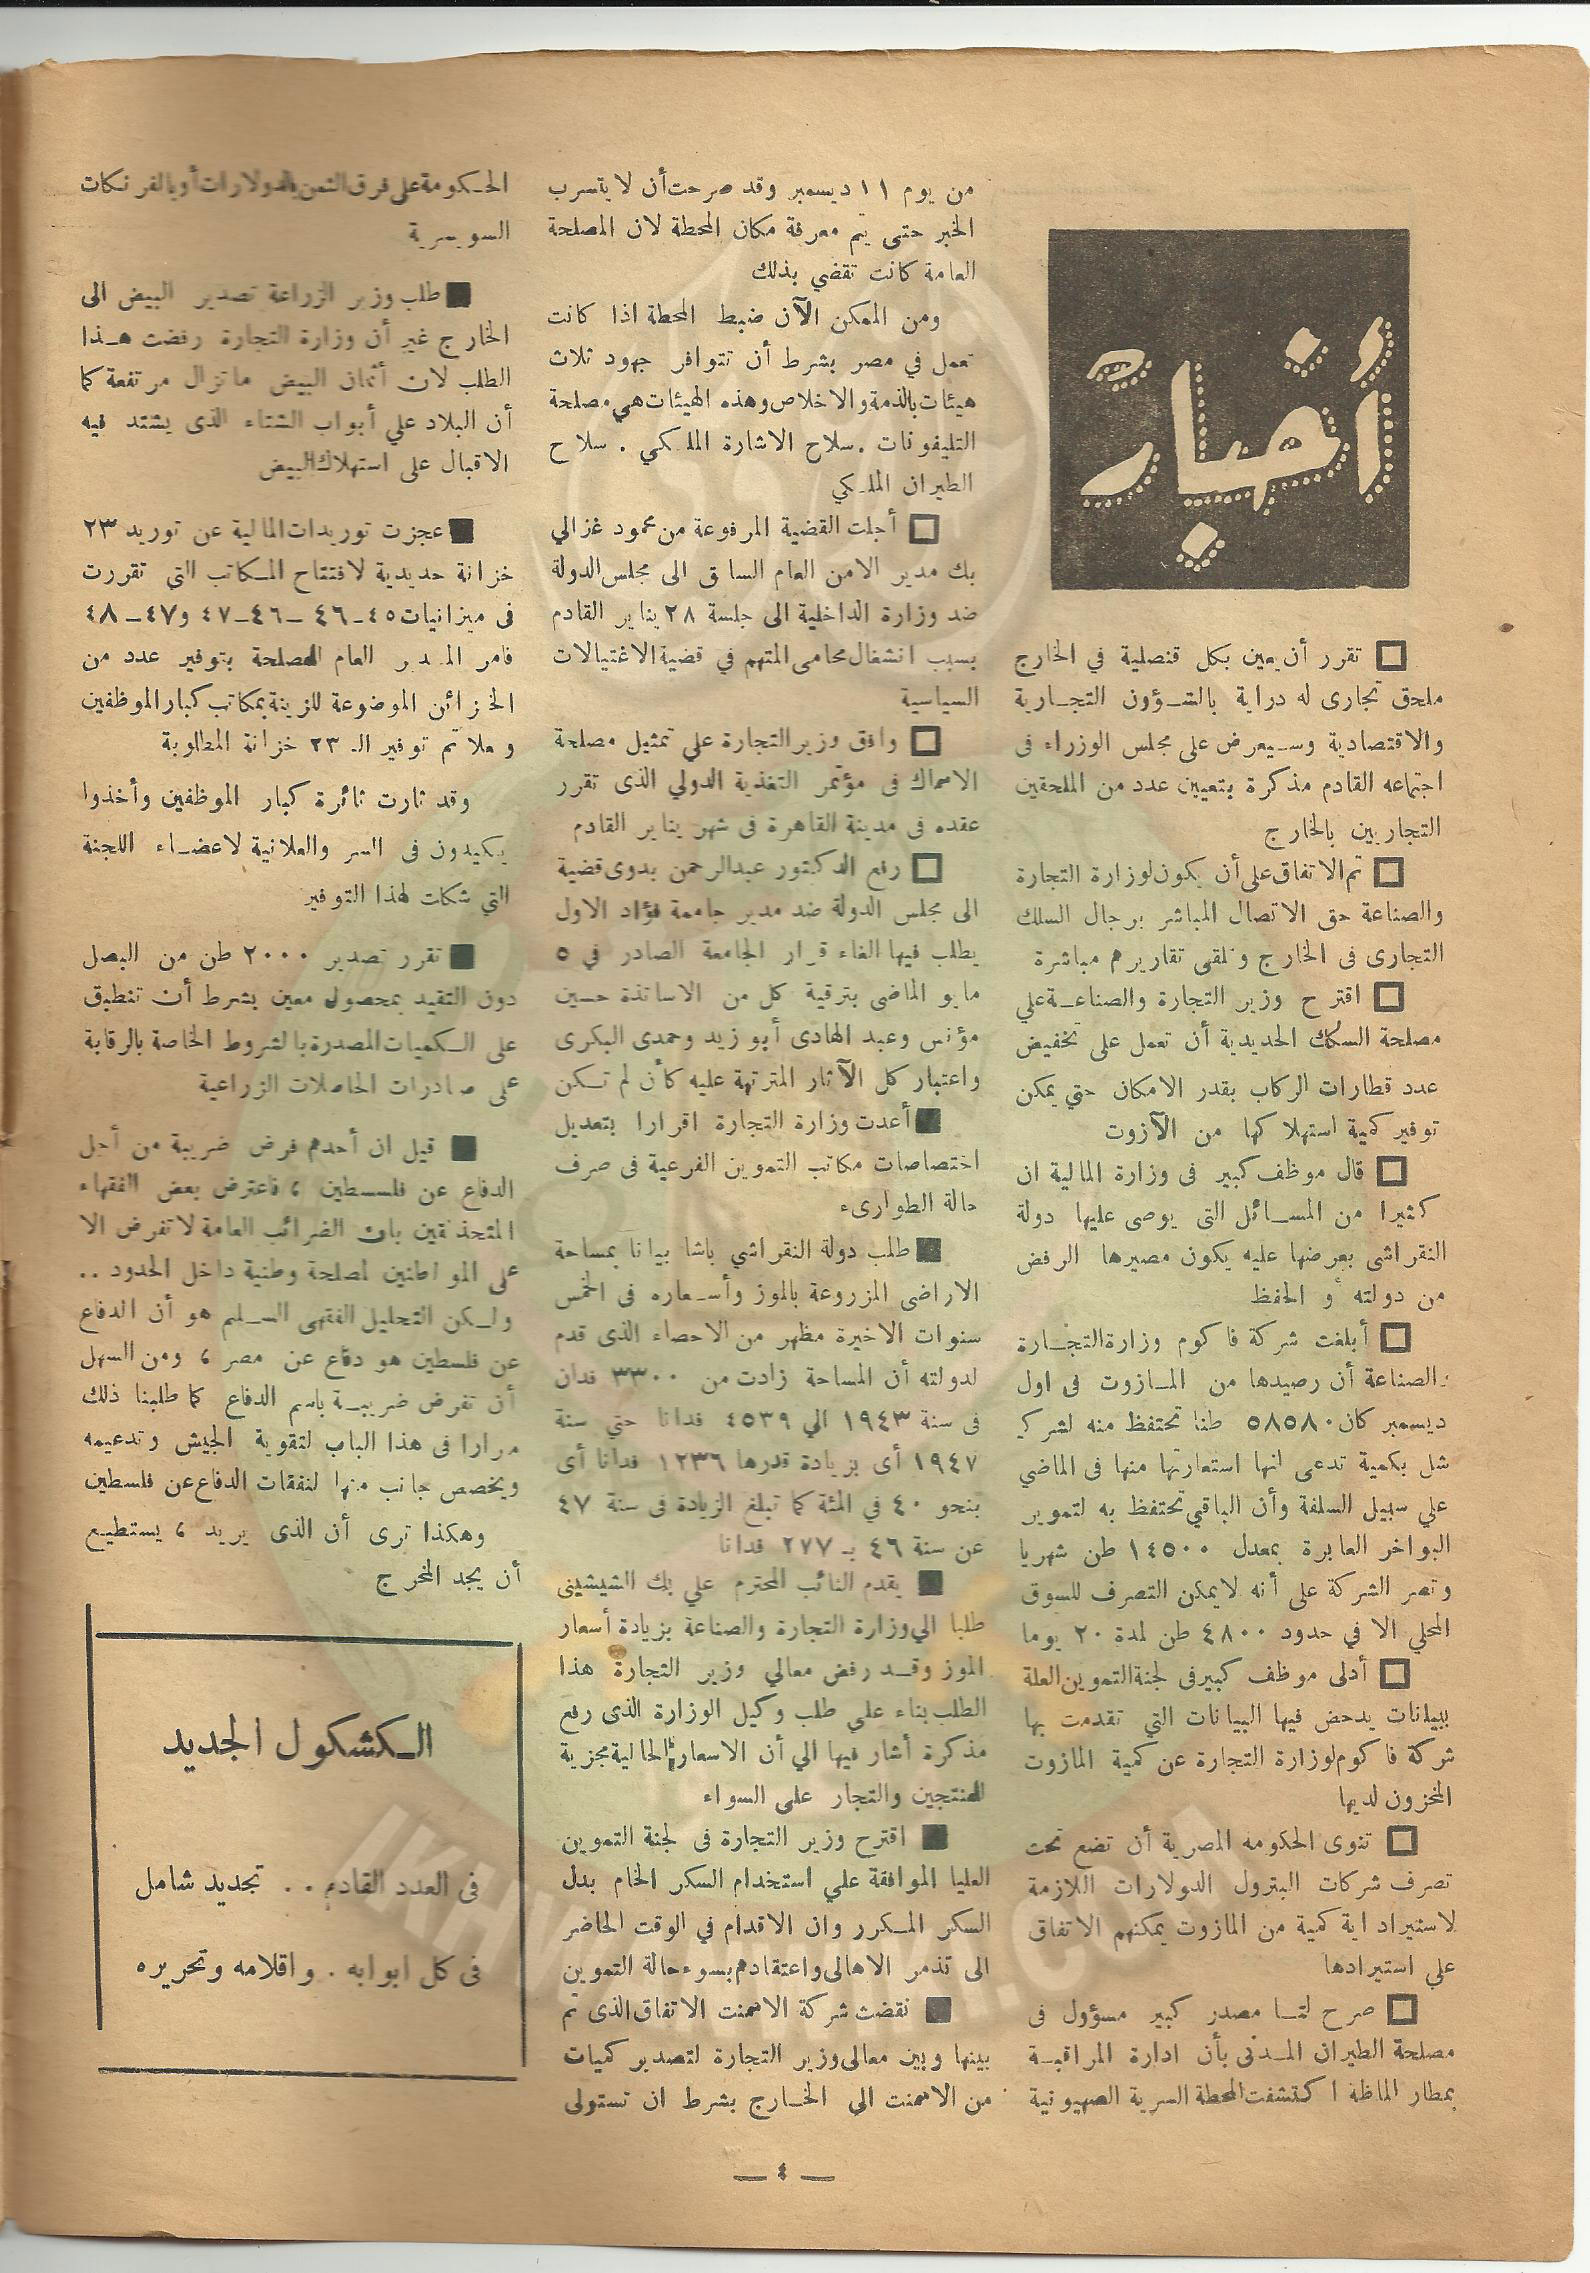 أخبار
□ تقرر أن يعين بكل قنصلية في الخارج
ملحق تجارى له دراية بالشـؤون التجـارية
والاقتصادية وسـيعرض على مجلس الوزراء فى
اجتماعه القادم مذكرة بتعيين عدد من الملحقين
التجاريين بالخارج
□ تم الاتفاق على أن يكون لوزارة التجارة
والصناعة حق الاتصال المباشر برجال السلك
التجارى فى الخارج وتلقى تقاريرهم مباشرة
□ اقترح وزير التجارة والصناعـة علي
مصلحة السكك الحديدية أن تعمل على تخفيض
عدد قطارات الركاب بقدر الامكان حتي يمكن
توفير كمية استهلاكها من الآزوت
□ قال موظف كبير فى وزارة المالية ان
كثيرا من المسـائل التى يوصى عليها دولة
النقراشى بعرضها عليه يكون مصيرها الرفض
من دولته أو الحفظ
□ أبلغت شركة فاكوم وزارة التجـارة
والصناعة أن رصيدها من المـازوت فى اول
ديسمبر كان ٥٨٥٨٠ طنا تحتفظ منه لشركة
شل بكمية تدعى انها استعارتها منها فى الماضي
علي سبيل السلفة وأن الباقي تحتفظ به لتموين
البواخر العابرة بمعدل ١٤٥٠٠ طن شهريا
وتصر الشركة على أنه لايمكن التصرف للسوق
المحلي الا في حدود ٤٨٠٠ طن لمدة ٢٠ يوما
□ أدلى موظف كبير فى لجنة التموين العليا
ببيانات يدحض فيها البيانات التي تقدمت بها
شركة فاكوم لوزارة التجارة عن كمية المازوت
المخزون لديها
□ تنوى الحكومه المصرية أن تضع تحت
تصرف شركات البترول الدولارات اللازمة
لاستيراد اية كمية من المازوت يمكنهم الاتفاق
علي استيرادها
□ صرح لنـا مصدر كبير مسؤول فى
مصلحة الطيران المـدنى بأن ادارة المراقبـة
بمطار الماظه اكتشفت المحطة السرية الصهيونية
من يوم ١١ ديسمبر وقد صرحت أن لا يتسرب
الخبر حتى يتم معرفة مكان المحطة لان المصلحة
العامة كانت تقضي بذلك
ومن الممكن الآن ضبط المحطة اذا كانت
تعمل في مصر بشرط أن تتوافر جهود ثلاث
هيئات بالذمة والاخلاص وهذه الهيئات هي مصلحة
التليفونات . سلاح الاشارة الملكي . سلاح
الطيران الملكي
□ أجلت القضية المرفوعة من محمود غزالي
بك مدير الامن العام السابق الى مجلس الدولة
ضد وزارة الداخلية الى جلسة ٢٨ يناير القادم
بسبب انشغال محامى المتهم في قضية الاغتيالات
السياسية
□ وافق وزير التجارة علي تمثيل مصلحة
الاسماك فى مؤتمر التغذية الدولي الذى تقرر
عقده فى مدينة القاهرة فى شهر يناير القادم
□ رفع الدكتور عبدالرحمن بدوى قضية
الى مجلس الدولة ضد مدير جامعة فؤاد الاول
يطلب فيها الغاء قرار الجامعة الصادر في ٥
مايو الماضى بترقية كل من الاساتذة حسين
مؤنس وعبد الهادى أبو زيد وحمدى البكرى
واعتبار كل الآثار المترتبة عليه كأن لم تـكن
■ أعدت وزارة التجارة اقرارا بتعديل
اختصاصات مكاتب التموين الفرعية فى صرف
حالة الطوارىء
■ طلب دولة النقراشي باشا بيانا بمساحة
الاراضى المزروعة بالموز وأسـعاره فى الخمس
سنوات الاخيرة مظهر من الاحصاء الذى قدم
لدولته أن المساحة زادت من ٣٣٠٠ فدان
فى سنة ١٩٤٣ الي ٤٥٣٩ فدانا حتي سنة
١٩٤٧ أى بزيادة قدرها ١٢٣٦ فدانا أى
بنحو ٤٠ في المئة كما تبلغ الزيادة فى سنة ٤٧
عن سنة ٤٦ بـ ٢٧٧ فدانا
■ يقدم النائب المحترم علي بك الشيشينى
طلبا الي وزارة التجارة والصناعة بزيادة أسعار
الموز وقـد رفض معالي وزير التجارة هذا
الطلب بناء علي طلب وكيل الوزارة الذى رفع
مذكرة أشار فيها الي أن الاسعار الحالية مجزية
للمنتجين والتجار على السواء
■ اقترح وزير التجارة فى لجنة التموين
العليا الموافقة علي استخدام السكر الخام بدل
السكر المـكرر وان الاقدام في الوقت الحاضر
الى تذمر الاهالى واعتقادهم بسوء حالة التموين
■ نقضت شركة الاسمنت الاتفاق الذى تم
بينها وبين معالى وزير التجارة لتصدير كميات
من الاسمنت الي الخـارج بشرط ان تستولى
الحـكومة على فرق الثمن بالدولارات أو بالفرنكات
السويسرية
■ طلب وزير الزراعة تصدير البيض الى
الخارج غير أن وزارة التجارة رفضت هـذا
الطلب لان أثمان البيض ماتزال مرتفعة كما
أن البلاد علي أبواب الشتاء الذى يشتد فيه
الاقبال على استهلاك البيض
■ عجزت توريدات المالية عن توريد ٢٣
خزانة حديدية لافتتاح المـكاتب التي تقررت
فى ميزانيات ٤٥ـ٤٦ ـ ٤٦ـ٤٧ و٤٧ـ٤٨
فامر المـدير العام للمصلحة بتوفير عدد من
الخزائن الموضوعة للزينة بمكاتب كبار الموظفين
وفعلا تم توفير الـ ٢٣ خزانة المطلوبة
وقد ثارت ثائرة كبار الموظفين وأخذوا
يكيدون فى السر والعلانية لاعضـاء اللجنة
التي شكلت لهذا التوفير
■ تقرر تصدير ٢٠٠٠ طن من البصل
دون التقيد بمحصول معين بشرط أن تنطبق
على الـكميات المصدرة بالشروط الخاصة بالرقابة
على صادرات الحاصلات الزراعية
■ قيل ان أحدهم فرض ضريبة من أجل
الدفاع عن فلسطين ، فاعترض بعض الفقهاء
المتحذلقين بان الضرائب العامة لاتفرض الا
على المواطنين لمصلحة وطنية داخل الحدود ..
ولـكن التحليل الفقهى السـليم هو أن الدفاع
عن فلسطين هو دفاع عن مصر ، ومن السهل
أن تفرض ضريبـة باسم الدفاع كما طلبنا ذلك
مرارا فى هذا الباب لتقوية الجيش وتدعيمه
ويخصص جانب منها لنفقات الدفاع عن فلسطين
وهكذا ترى أن الذى يريد ، يستطيع
أن يجد المخرج
الـكشكول الجديد
فى العدد القادم . . تجديد شامل
فى كل ابوابه . واقلامه وتحريره
— ٤ —